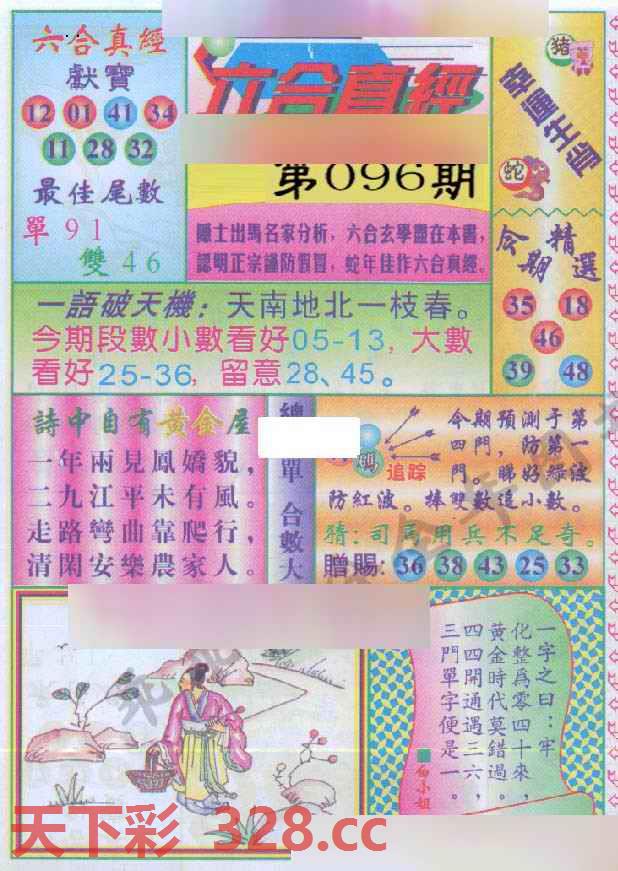 六合真經
獻寶
12 01 41 34
11 28 32
最佳尾數
單 91
雙 46
六合真經
第096期
隱士出馬名家分析，六合玄學盡在本書，
認明正宗謹防假冒，蛇年佳作六合真經。
猪
蛇
今期精選
35 18
46
39 48
一語破天機：天南地北一枝春。
今期段數小數看好05-13，大數
看好25-36，留意28、45。
詩中自有黃金屋
一年兩見鳳嬌貌，
二九江平未有風。
走路彎曲靠爬行，
清閑安樂農家人。
總
單
合數大
追踪
今期預測于第
四門，防第一
門。睇好綠波
防紅波。捧雙數追小數。
猜：司馬用兵不足奇。
贈賜：36 38 43 25 33
一字之曰：牢
化整爲零四十來，
黃金時代莫錯過。
四四開通遇三六，
三門單字便是一。
白小姐
天下彩 328.cc